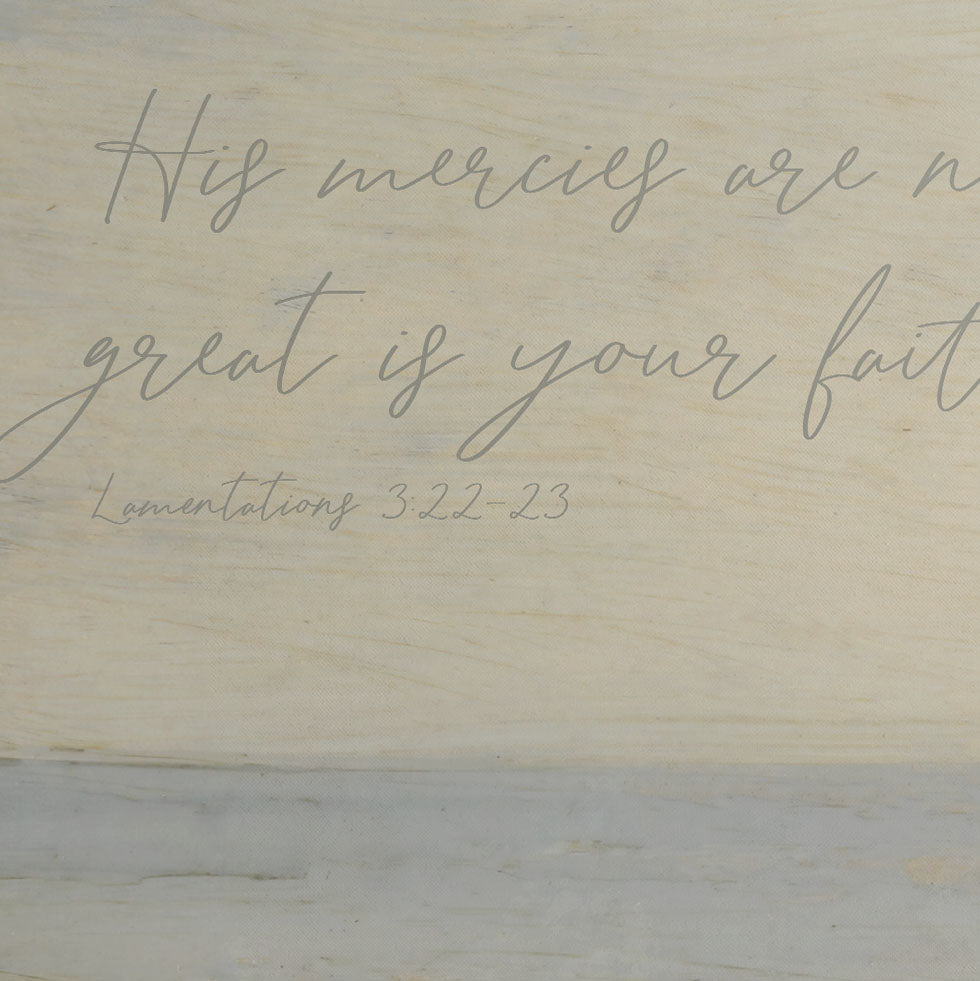 His mercies are n
great is your fait
Lamentations 3:22-23